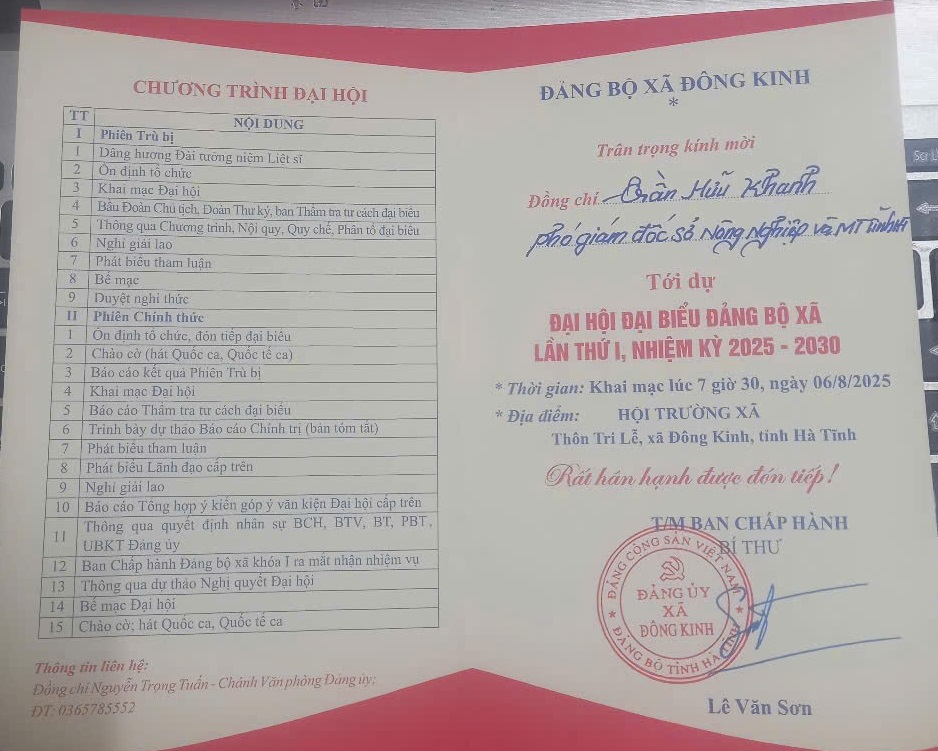 CHƯƠNG TRÌNH ĐẠI HỘI
TT NỘI DUNG
I Phiên Trù bị
1 Dâng hương Đài tưởng niệm Liệt sĩ
2 Ổn định tổ chức
3 Khai mạc Đại hội
4 Bầu Đoàn Chủ tịch, Đoàn Thư ký, ban Thẩm tra tư cách đại biểu
5 Thông qua Chương trình, Nội quy, Quy chế, Phân tổ đại biểu
6 Nghỉ giải lao
7 Phát biểu tham luận
8 Bế mạc
9 Duyệt nghi thức
II Phiên Chính thức
1 Ổn định tổ chức, đón tiếp đại biểu
2 Chào cờ (hát Quốc ca, Quốc tế ca)
3 Báo cáo kết quả Phiên Trù bị
4 Khai mạc Đại hội
5 Báo cáo Thẩm tra tư cách đại biểu
6 Trình bày dự thảo Báo cáo Chính trị (bản tóm tắt)
7 Phát biểu tham luận
8 Phát biểu Lãnh đạo cấp trên
9 Nghỉ giải lao
10 Báo cáo Tổng hợp ý kiến góp ý văn kiện Đại hội cấp trên
11 Thông qua quyết định nhân sự BCH, BTV, BT, PBT,
UBKT Đảng ủy
12 Ban Chấp hành Đảng bộ xã khóa I ra mắt nhận nhiệm vụ
13 Thông qua dự thảo Nghị quyết Đại hội
14 Bế mạc Đại hội
15 Chào cờ; hát Quốc ca, Quốc tế ca
Thông tin liên hệ:
Đồng chí Nguyễn Trọng Tuấn - Chánh Văn phòng Đảng ủy;
ĐT: 0365785552
ĐẢNG BỘ XÃ ĐÔNG KINH
*
Trân trọng kính mời
Đồng chí Trần Hữu Khanh
phó giám đốc sở Nông Nghiệp và MT tỉnh HT
Tới dự
ĐẠI HỘI ĐẠI BIỂU ĐẢNG BỘ XÃ
LẦN THỨ I, NHIỆM KỲ 2025 - 2030
* Thời gian: Khai mạc lúc 7 giờ 30, ngày 06/8/2025
* Địa điểm: HỘI TRƯỜNG XÃ
Thôn Tri Lễ, xã Đông Kinh, tỉnh Hà Tĩnh
Rất hân hạnh được đón tiếp!
T/M BAN CHẤP HÀNH
BÍ THƯ
ĐẢNG CỘNG SẢN VIỆT NAM
ĐẢNG ỦY
XÃ
ĐÔNG KINH
ĐẢNG BỘ TỈNH HÀ TĨNH
Lê Văn Sơn